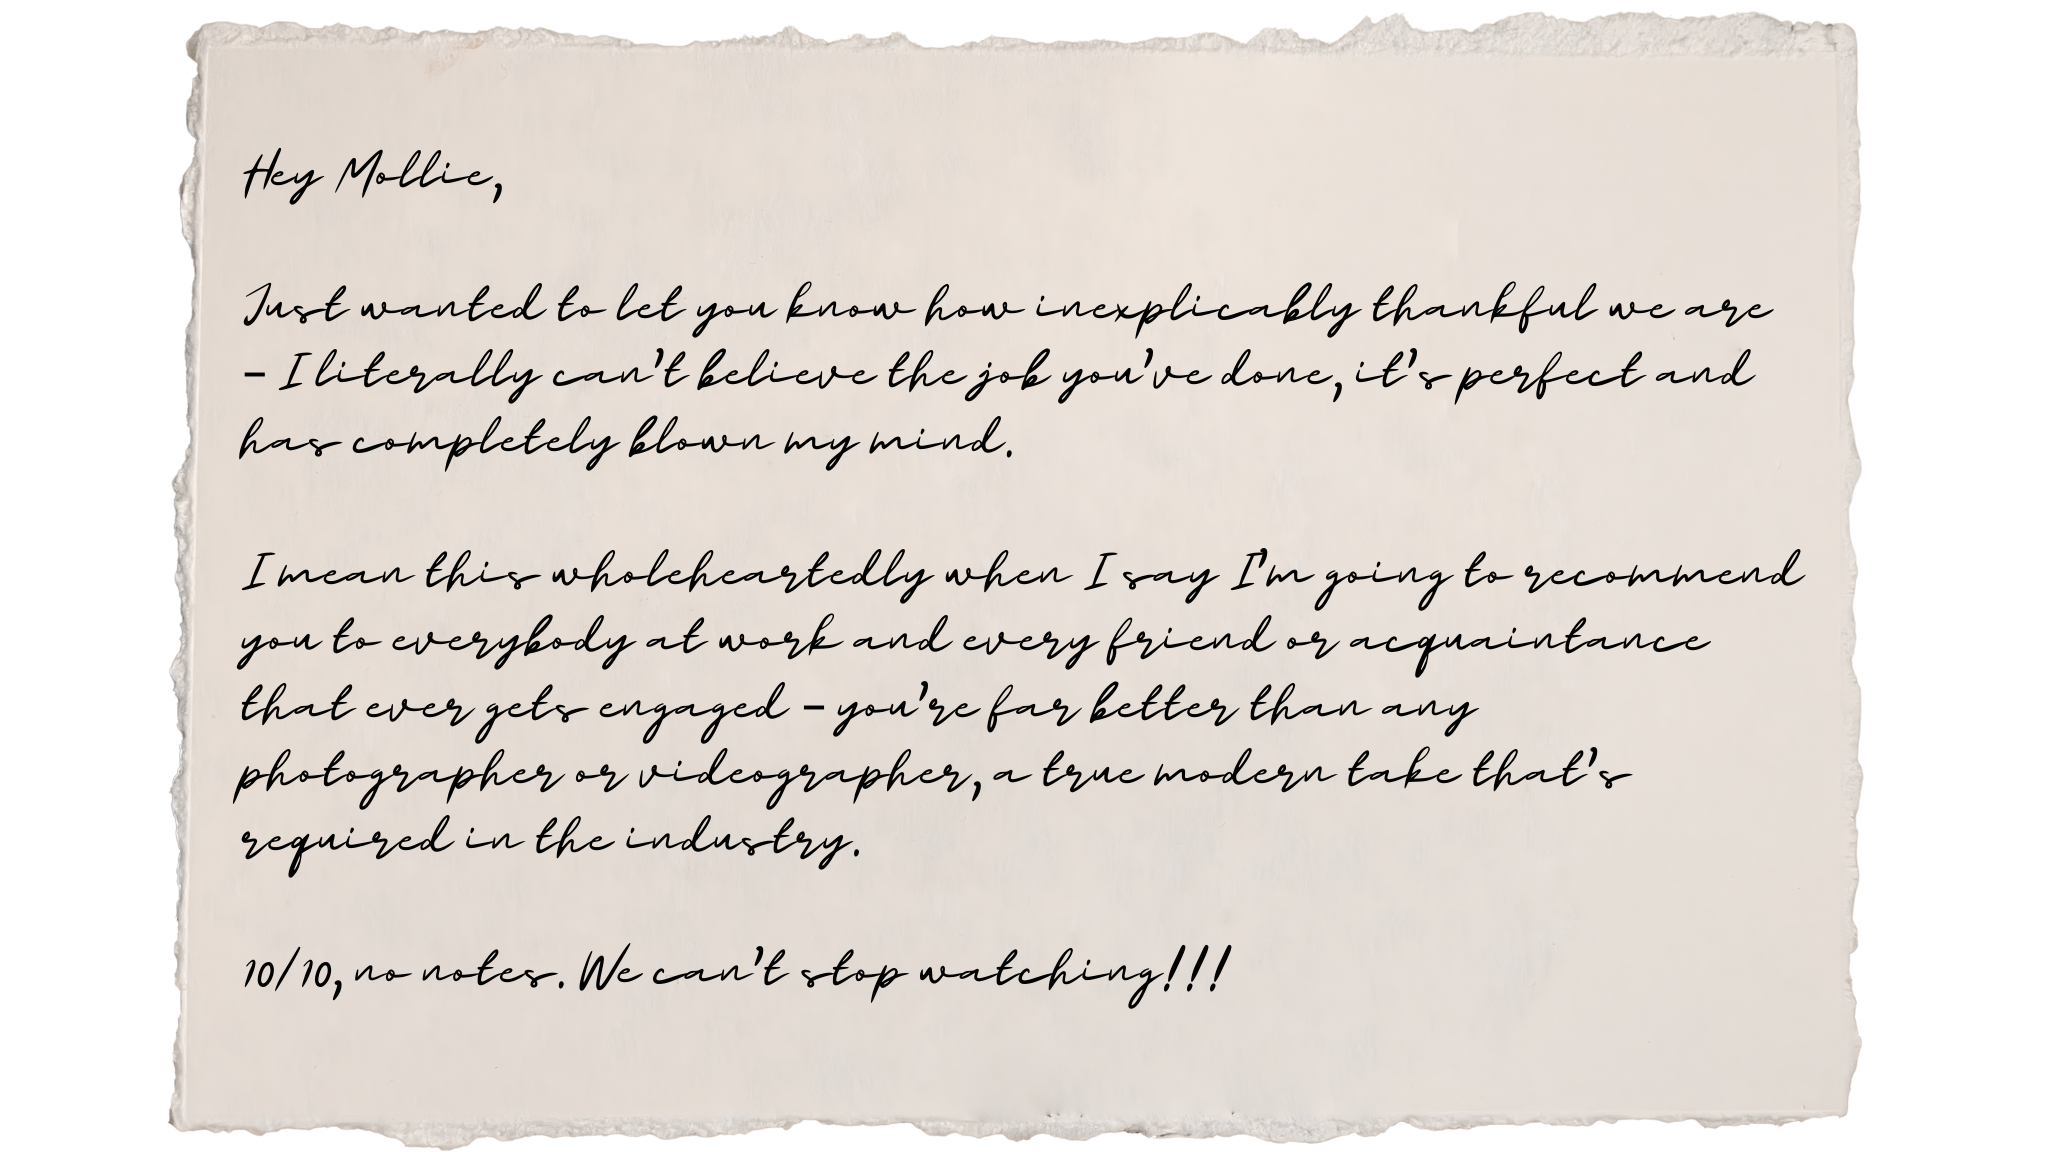 Hey Mollie,
Just wanted to let you know how inexplicably thankful we are
- I literally can't believe the job you've done, it's perfect and
has completely blown my mind.
I mean this wholeheartedly when I say I'm going to recommend
you to everybody at work and every friend or acquaintance
that ever gets engaged - you're far better than any
photographer or videographer, a true modern take that's
required in the industry.
10/10, no notes. We can't stop watching!!!